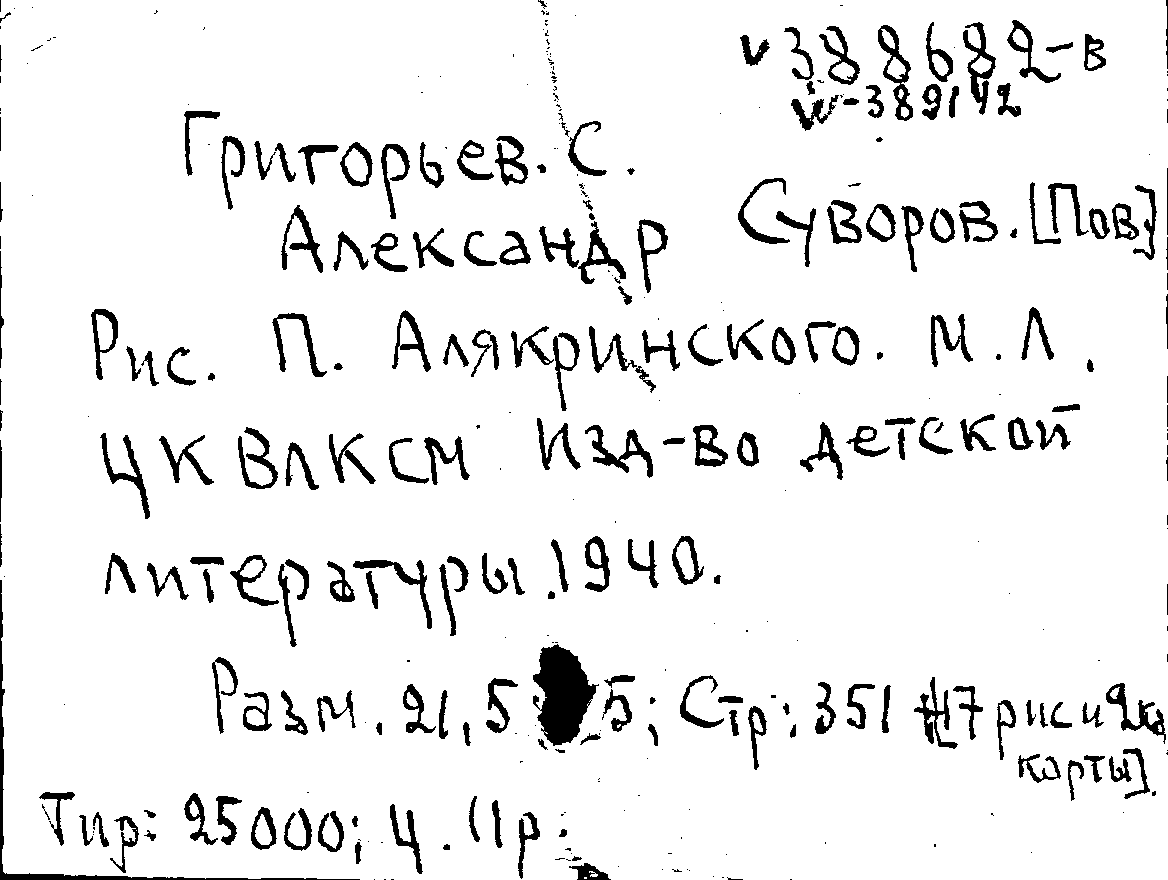 v 388682-в
w-389142
Григорьев. С.
Александр Суворов. [Пов]
Рис. П. Алякринского. М. Л.
ЦК ВЛКСМ Изд-во детской
литературы. 1940.
Разм. 21,5 5; Стр: 351 [17 рис и 2
карты].
Тир: 25000; Ц. 11р.